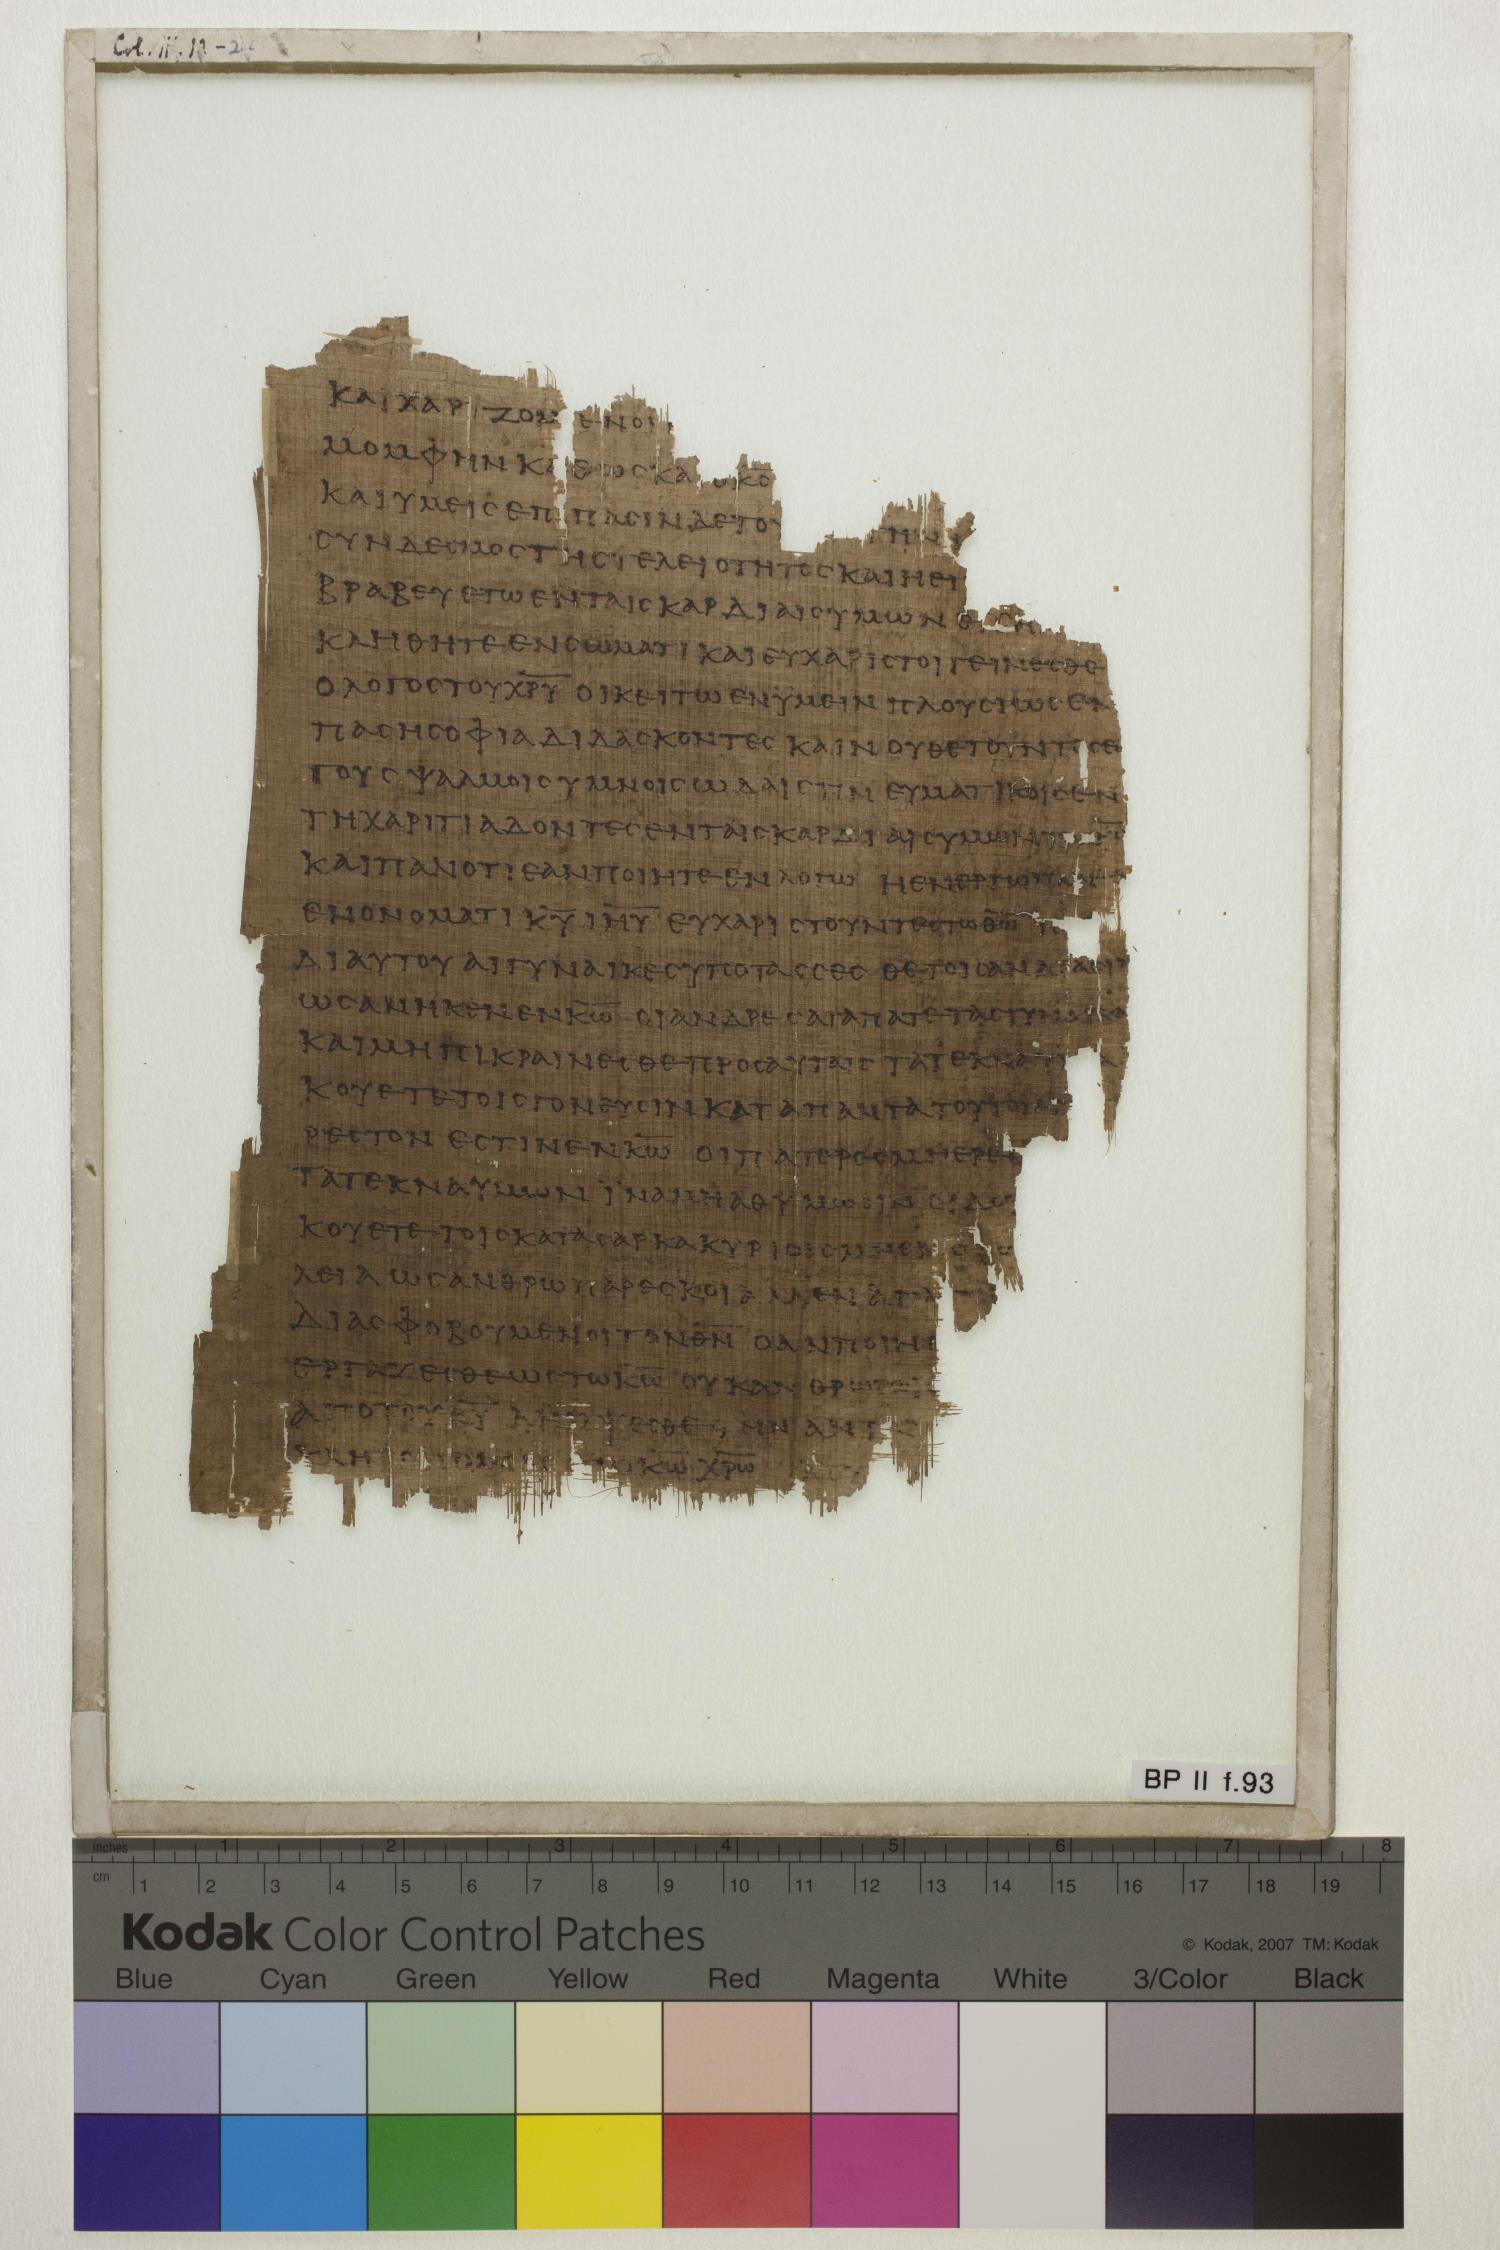 ΚΑΙ ΧΑΡΙΖΟΜΕΝΟΙ
ΜΟΜΦΗΝ ΚΑΘΩΣ ΚΑΙ Ο Κ̅Σ̅
ΚΑΙ ΥΜΕΙΣ ΕΠΙ ΠΑΣΙΝ ΔΕ ΤΟΥ
ΣΥΝΔΕΣΜΟΣ ΤΗΣ ΤΕΛΕΙΟΤΗΤΟΣ ΚΑΙ Η ΕΙ
ΒΡΑΒΕΥΕΤΩ ΕΝ ΤΑΙΣ ΚΑΡΔΙΑΙΣ ΥΜΩΝ ΕΙΣ ΗΝ
ΚΛΗΘΗΤΕ ΕΝ ΣΩΜΑΤΙ ΚΑΙ ΕΥΧΑΡΙΣΤΟΙ ΓΕΙΝΕΣΘΕ
Ο ΛΟΓΟΣ ΤΟΥ Χ̅Ρ̅Υ̅ ΟΙΚΕΙΤΩ ΕΝ ΥΜΕΙΝ ΠΛΟΥΣΙΩΣ ΕΝ
ΠΑΣΗ ΣΟΦΙΑ ΔΙΔΑΣΚΟΝΤΕΣ ΚΑΙ ΝΟΥΘΕΤΟΥΝΤΕΣ Ε
ΤΟΥΣ ΨΑΛΜΟΙΣ ΥΜΝΟΙΣ ΩΔΑΙΣ ΠΝΕΥΜΑΤΙΚΟΙΣ ΕΝ
ΤΗ ΧΑΡΙΤΙ ΑΔΟΝΤΕΣ ΕΝ ΤΑΙΣ ΚΑΡΔΙΑΙΣ ΥΜΩΝ ΤΩ
ΚΑΙ ΠΑΝ ΟΤΙ ΕΑΝ ΠΟΙΗΤΕ ΕΝ ΛΟΓΩ Η ΕΝ ΕΡΓΩ ΠΑΝΤΑ
ΕΝ ΟΝΟΜΑΤΙ Κ̅Υ̅ Ι̅Η̅Υ̅ ΕΥΧΑΡΙΣΤΟΥΝΤΕΣ ΤΩ Θ̅Ω̅
ΔΙ ΑΥΤΟΥ ΑΙ ΓΥΝΑΙΚΕΣ ΥΠΟΤΑΣΣΕΣΘΕ ΤΟΙΣ ΑΝΔΡΑΣΙΝ
ΩΣ ΑΝΗΚΕΝ ΕΝ Κ̅Ω̅ ΟΙ ΑΝΔΡΕΣ ΑΓΑΠΑΤΕ ΤΑΣ ΓΥΝΑΙΚΑ
ΚΑΙ ΜΗ ΠΙΚΡΑΙΝΕΣΘΕ ΠΡΟΣ ΑΥΤΑΣ ΤΑ ΤΕΚΝΑ
ΚΟΥΕΤΕ ΤΟΙΣ ΓΟΝΕΥΣΙΝ ΚΑΤΑ ΠΑΝΤΑ ΤΟΥΤΟ
ΡΕΣΤΟΝ ΕΣΤΙΝ ΕΝ Κ̅Ω̅ ΟΙ ΠΑΤΕΡΕΣ ΜΗ ΕΡΕ
ΤΑ ΤΕΚΝΑ ΥΜΩΝ ΙΝΑ ΜΗ ΑΘΥΜΩΣΙΝ ΟΙ ΔΟΥ
ΚΟΥΕΤΕ ΤΟΙΣ ΚΑΤΑ ΣΑΡΚΑ ΚΥΡΙΟΙΣ ΜΗ ΕΝ
ΛΕΙΑ ΩΣ ΑΝΘΡΩΠΑΡΕΣΚΟΙ ΑΛΛ ΕΝ ΑΠΛ
ΔΙΑΣ ΦΟΒΟΥΜΕΝΟΙ ΤΟΝ Θ̅Ν̅ Ο ΑΝ ΠΟΙΗ
ΕΡΓΑΖΕΣΘΕ ΩΣ ΤΩ Κ̅Ω̅ ΟΥΚ ΑΝΘΡΩΠΟΙ
ΑΠΟ ΤΟΥ Κ̅Υ̅ ΛΗΜΨΕΣΘΕ ΤΗΝ ΑΝΤ
ΚΛΗ Κ̅Ω̅ Χ̅Ρ̅Ω̅
BP II f.93
inches 1 2 3 4 5 6 7 8
cm 1 2 3 4 5 6 7 8 9 10 11 12 13 14 15 16 17 18 19
Kodak Color Control Patches
© Kodak, 2007 TM: Kodak
Blue Cyan Green Yellow Red Magenta White 3/Color Black